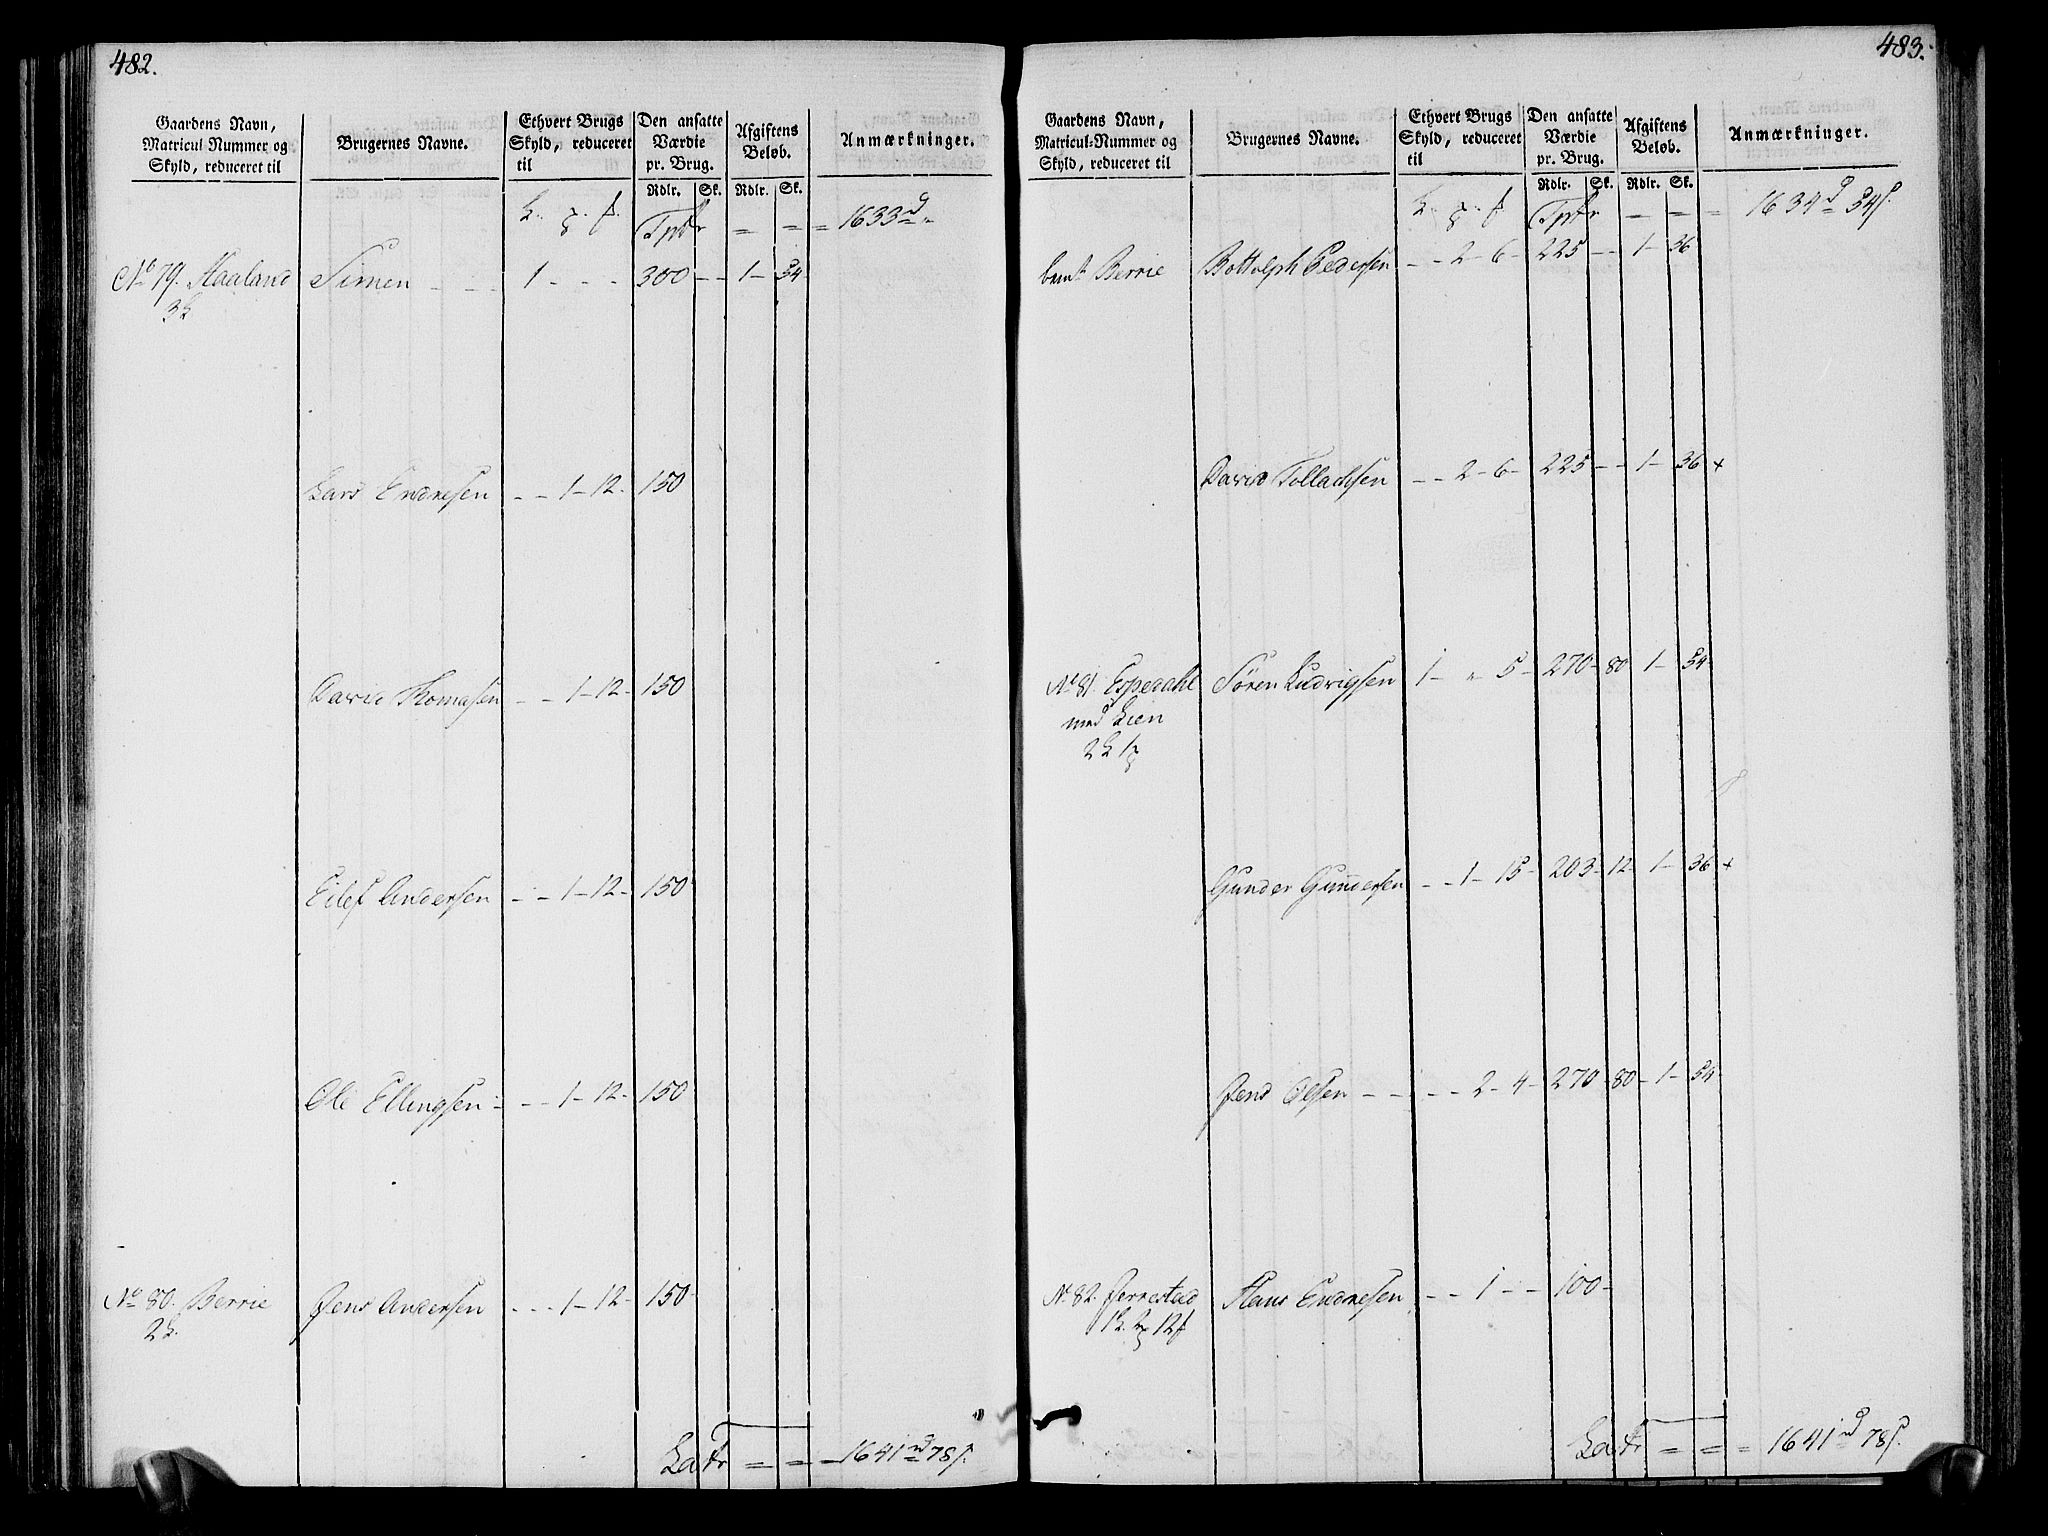 482.
Gaardens Navn, Matricul-Nummer og Skyld, reduceret til
Brugernes Navne.
Ethvert Brugs Skyld, reduceret til
Den ansatte Værdie pr. Brug.
Afgiftens Beløb.
Anmærkninger.
Rdlr. Sk. Rdlr. Sk.
Tpfr = = = 1633
No 79. Haaland Simen - - - 1 - - - 300 - - 1 - 54
3
Lars Endresen - - 1 - 12 - 150
David Thomassen - - 1 - 12 - 150
Eilef Andersen - - 1 - 12 - 150
Ole Ellingsen - - - 1 - 12 - 150
No 80. Berrie Jens Andersen - - - 1 - 12 - 150
2
Latr = = = 1641 78
483.
Gaardens Navn, Matricul-Nummer og Skyld, reduceret til
Brugernes Navne.
Ethvert Brugs Skyld, reduceret til
Den ansatte Værdie pr. Brug.
Afgiftens Beløb.
Anmærkninger.
Rdlr. Sk. Rdlr. Sk.
Tpfr = = = 1634 54
Berrie Bottolph Pedersen - - 2 - 6 - 225 - - 1 - 36
David Tollachsen - - 2 - 6 - 225 - - 1 - 36 +
No 81. Espedahl Sören Ludvigsen 1 - " 5 - 270 - 80 1 - 54
med Lien
2 1
Gunder Gundersen - - 1 - 15 - 203 - 12 - 1 - 36 +
Jens Olsen - - - - 2 - 4 - 270 - 80 - 1 - 54
No 82. Jerrestad Hans Endresen - - 1 - - 100 -
12
Latr = = = 1641 78